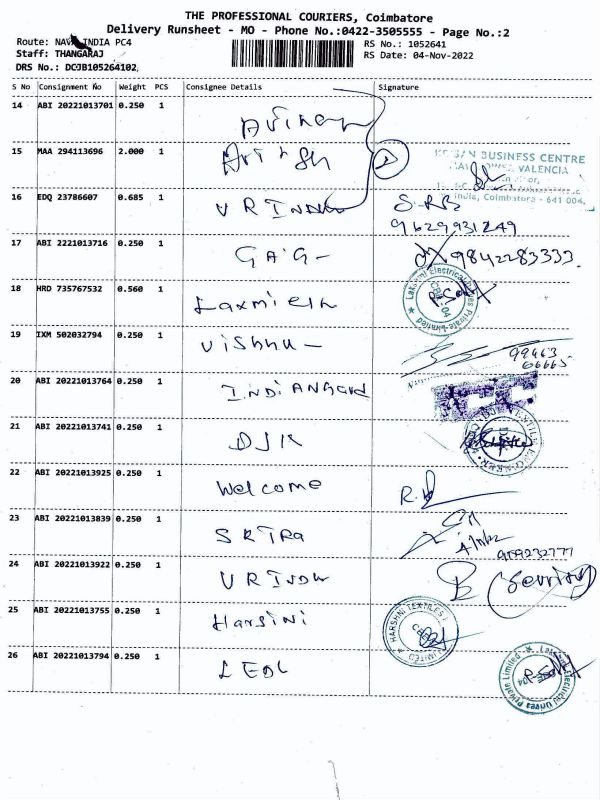 THE PROFESSIONAL COURIERS, Coimbatore
Delivery Runsheet - MO - Phone No.:0422-3505555 - Page No.:2
Route: NAVA INDIA PC4
RS No.: 1052641
Staff: THANGARAJ
RS Date: 04-Nov-2022
DRS No.: DCJB105264102
S No Consignment No Weight PCS Consignee Details Signature
14 ABI 20221013701 0.250 1
15 MAA 294113696 2.000 1
BUSINESS CENTRE
VALENCIA
India, Coimbatore - 641 004.
16 EDQ 23786607 0.685 1 V R Indu
9629931249
17 ABI 2221013716 0.250 1 GAG - 9842283333
18 HRD 735767532 0.560 1
Lakshmi Electrical Drives Private Limited
19 IXM 502032794 0.250 1 Vishnu - 99463
66665
20 ABI 20221013764 0.250 1
21 ABI 20221013741 0.250 1 DJK
22 ABI 20221013925 0.250 1 Welcome
23 ABI 20221013839 0.250 1
24 ABI 20221013922 0.250 1 V R Indu
25 ABI 20221013755 0.250 1 Harsini
HARSHNI TEXTILES LIMITED
26 ABI 20221013794 0.250 1 LEDL
Lakshmi Electrical Drives Private Limited